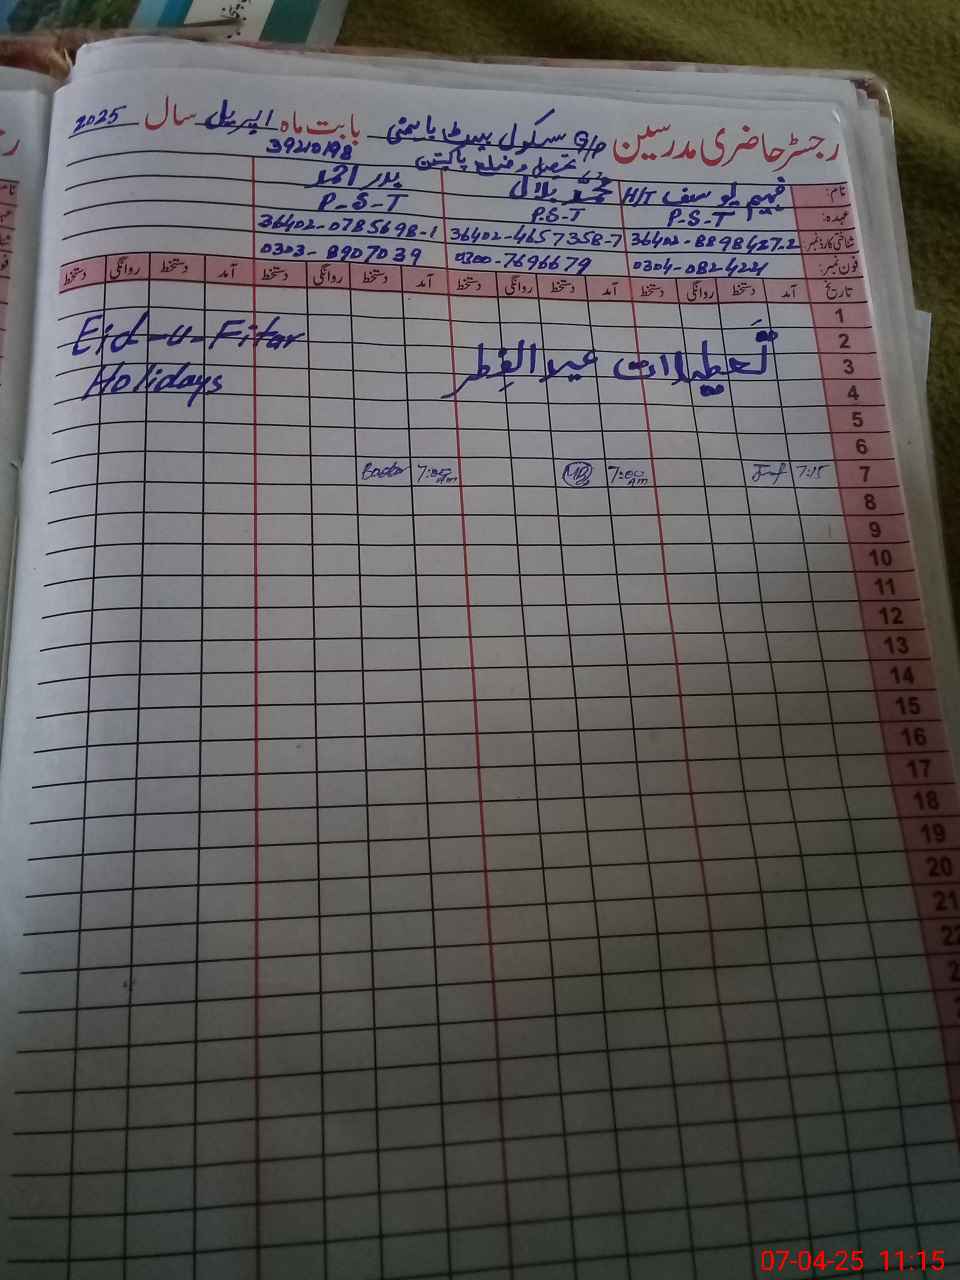 رجسٹر حاضری مدرسین G/P سکول بابت ماہ اپریل سال 2025
39210198
تحصیل و ضلع پاکپتن
نام: فہیم یوسف H/T محمد بلال بدر احمد
عہدہ: P.S.T P.S.T P-S-T
شناختی کارڈ نمبر: 36402-8898487-2 36402-4657358-7 36402-0785698-1
فون نمبر: 0300-7696679 0303-8907039
تاریخ آمد دستخط روانگی دستخط آمد دستخط روانگی دستخط آمد دستخط روانگی دستخط آمد دستخط روانگی دستخط
1
2
Eid-u-Fitar
3 تعطیلات عید الفطر
Holidays
4
5
6
7 7:15 7:00 Am 7:00 Am
8
9
10
11
12
13
14
15
16
17
18
19
20
21
22
07-04-25 11:15